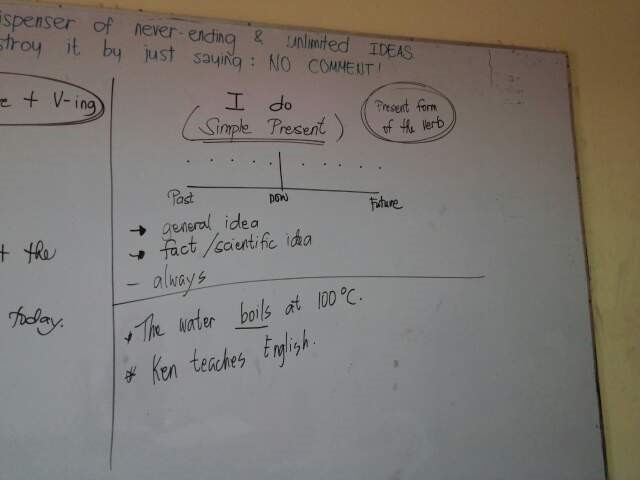 ispenser of never-ending & unlimited IDEAS
stroy it by just saying: NO COMMENT!
e + V-ing
I do
(Simple Present)
Present form
of the verb
Past now Future
→ general idea
→ fact/scientific idea
- always
t the
today.
* The water boils at 100°C.
* Ken teaches English.